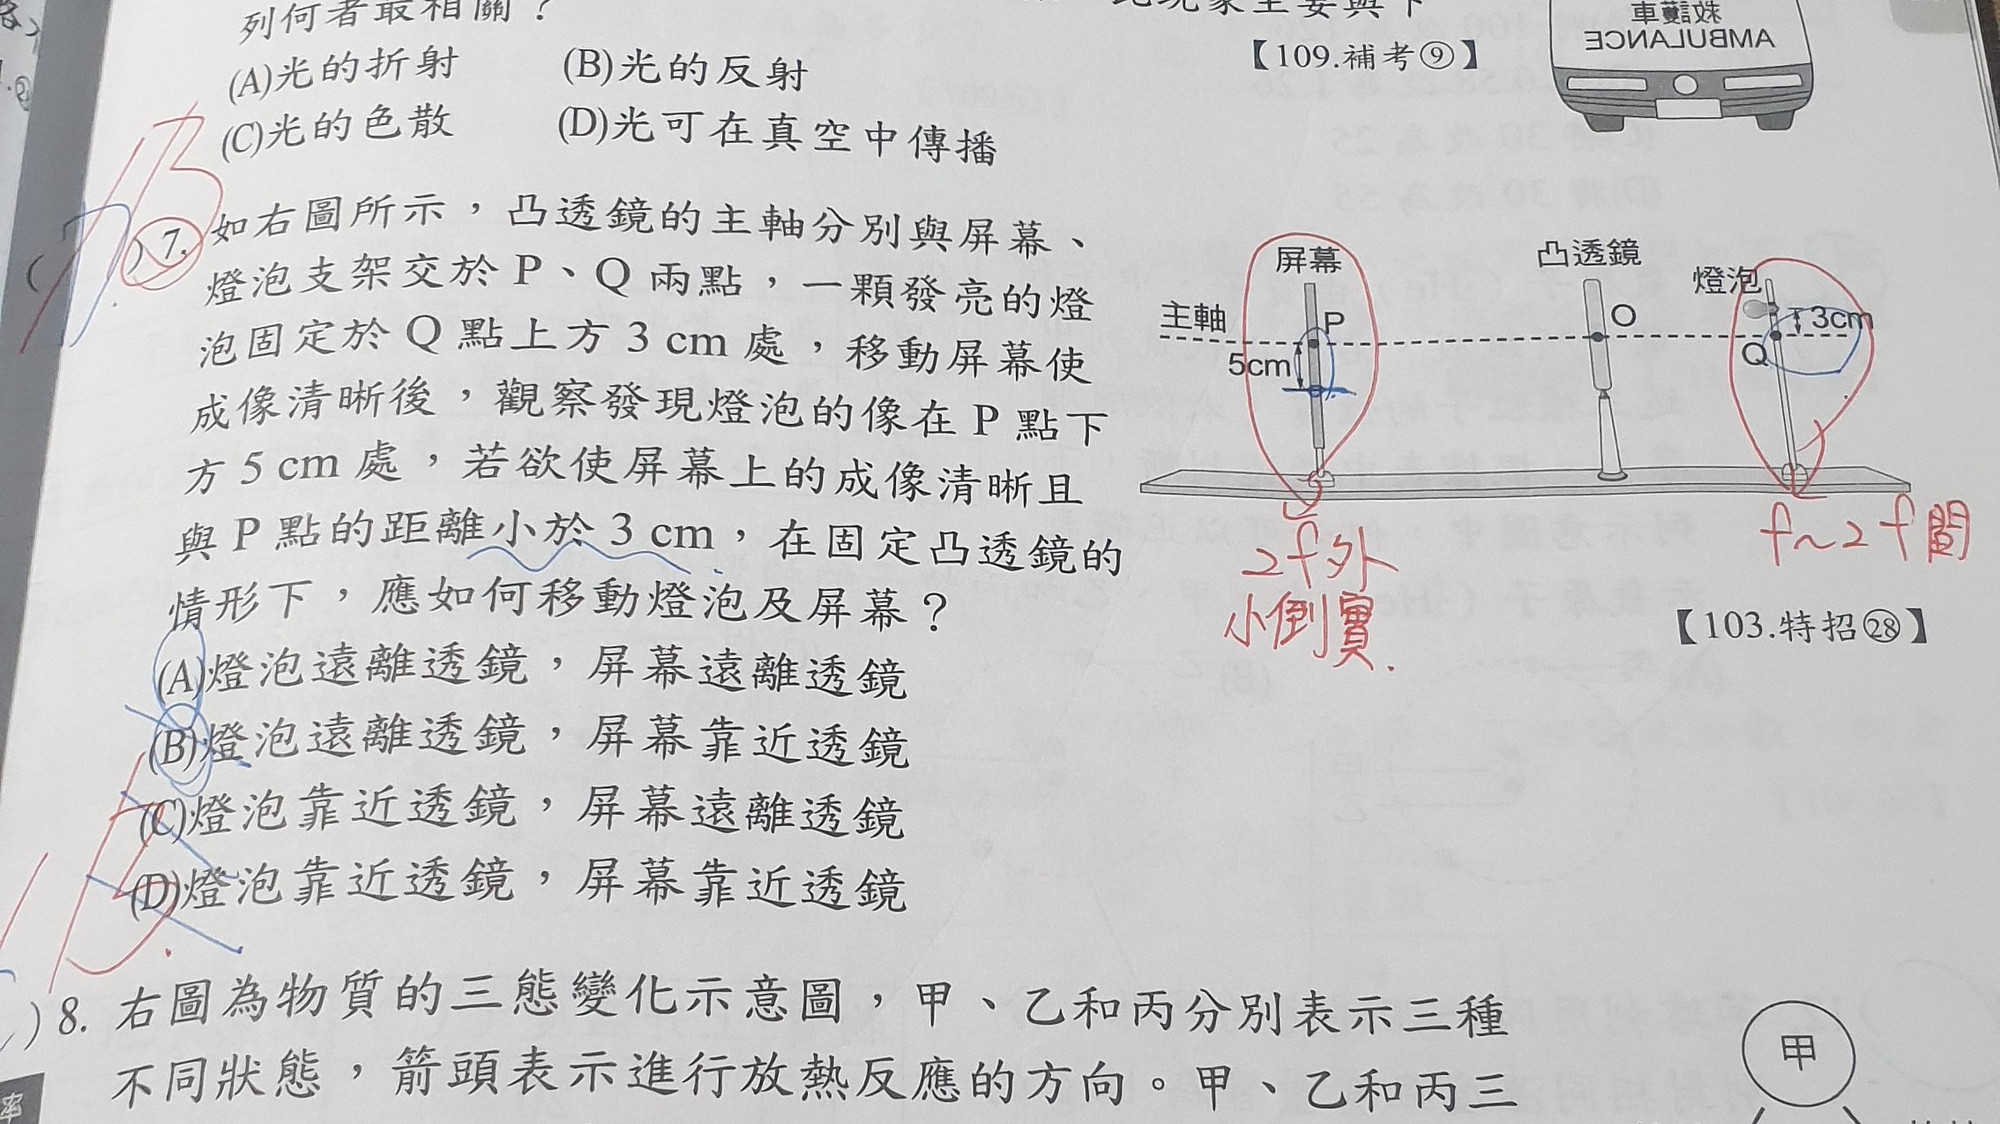 列何者最相關？
(A)光的折射 (B)光的反射
(C)光的色散 (D)光可在真空中傳播
【109.補考⑨】
救護車
AMBULANCE
)7. 如右圖所示，凸透鏡的主軸分別與屏幕、
燈泡支架交於 P、Q 兩點，一顆發亮的燈
泡固定於 Q 點上方 3 cm 處，移動屏幕使
成像清晰後，觀察發現燈泡的像在 P 點下
方 5 cm 處，若欲使屏幕上的成像清晰且
與 P 點的距離小於 3 cm，在固定凸透鏡的
情形下，應如何移動燈泡及屏幕？
(A)燈泡遠離透鏡，屏幕遠離透鏡
(B)燈泡遠離透鏡，屏幕靠近透鏡
(C)燈泡靠近透鏡，屏幕遠離透鏡
(D)燈泡靠近透鏡，屏幕靠近透鏡
屏幕
凸透鏡
燈泡
主軸
P
O
3cm
5cm
Q
2f外
小倒實.
f~2f間
【103.特招㉘】
)8. 右圖為物質的三態變化示意圖，甲、乙和丙分別表示三種
不同狀態，箭頭表示進行放熱反應的方向。甲、乙和丙三
甲
率